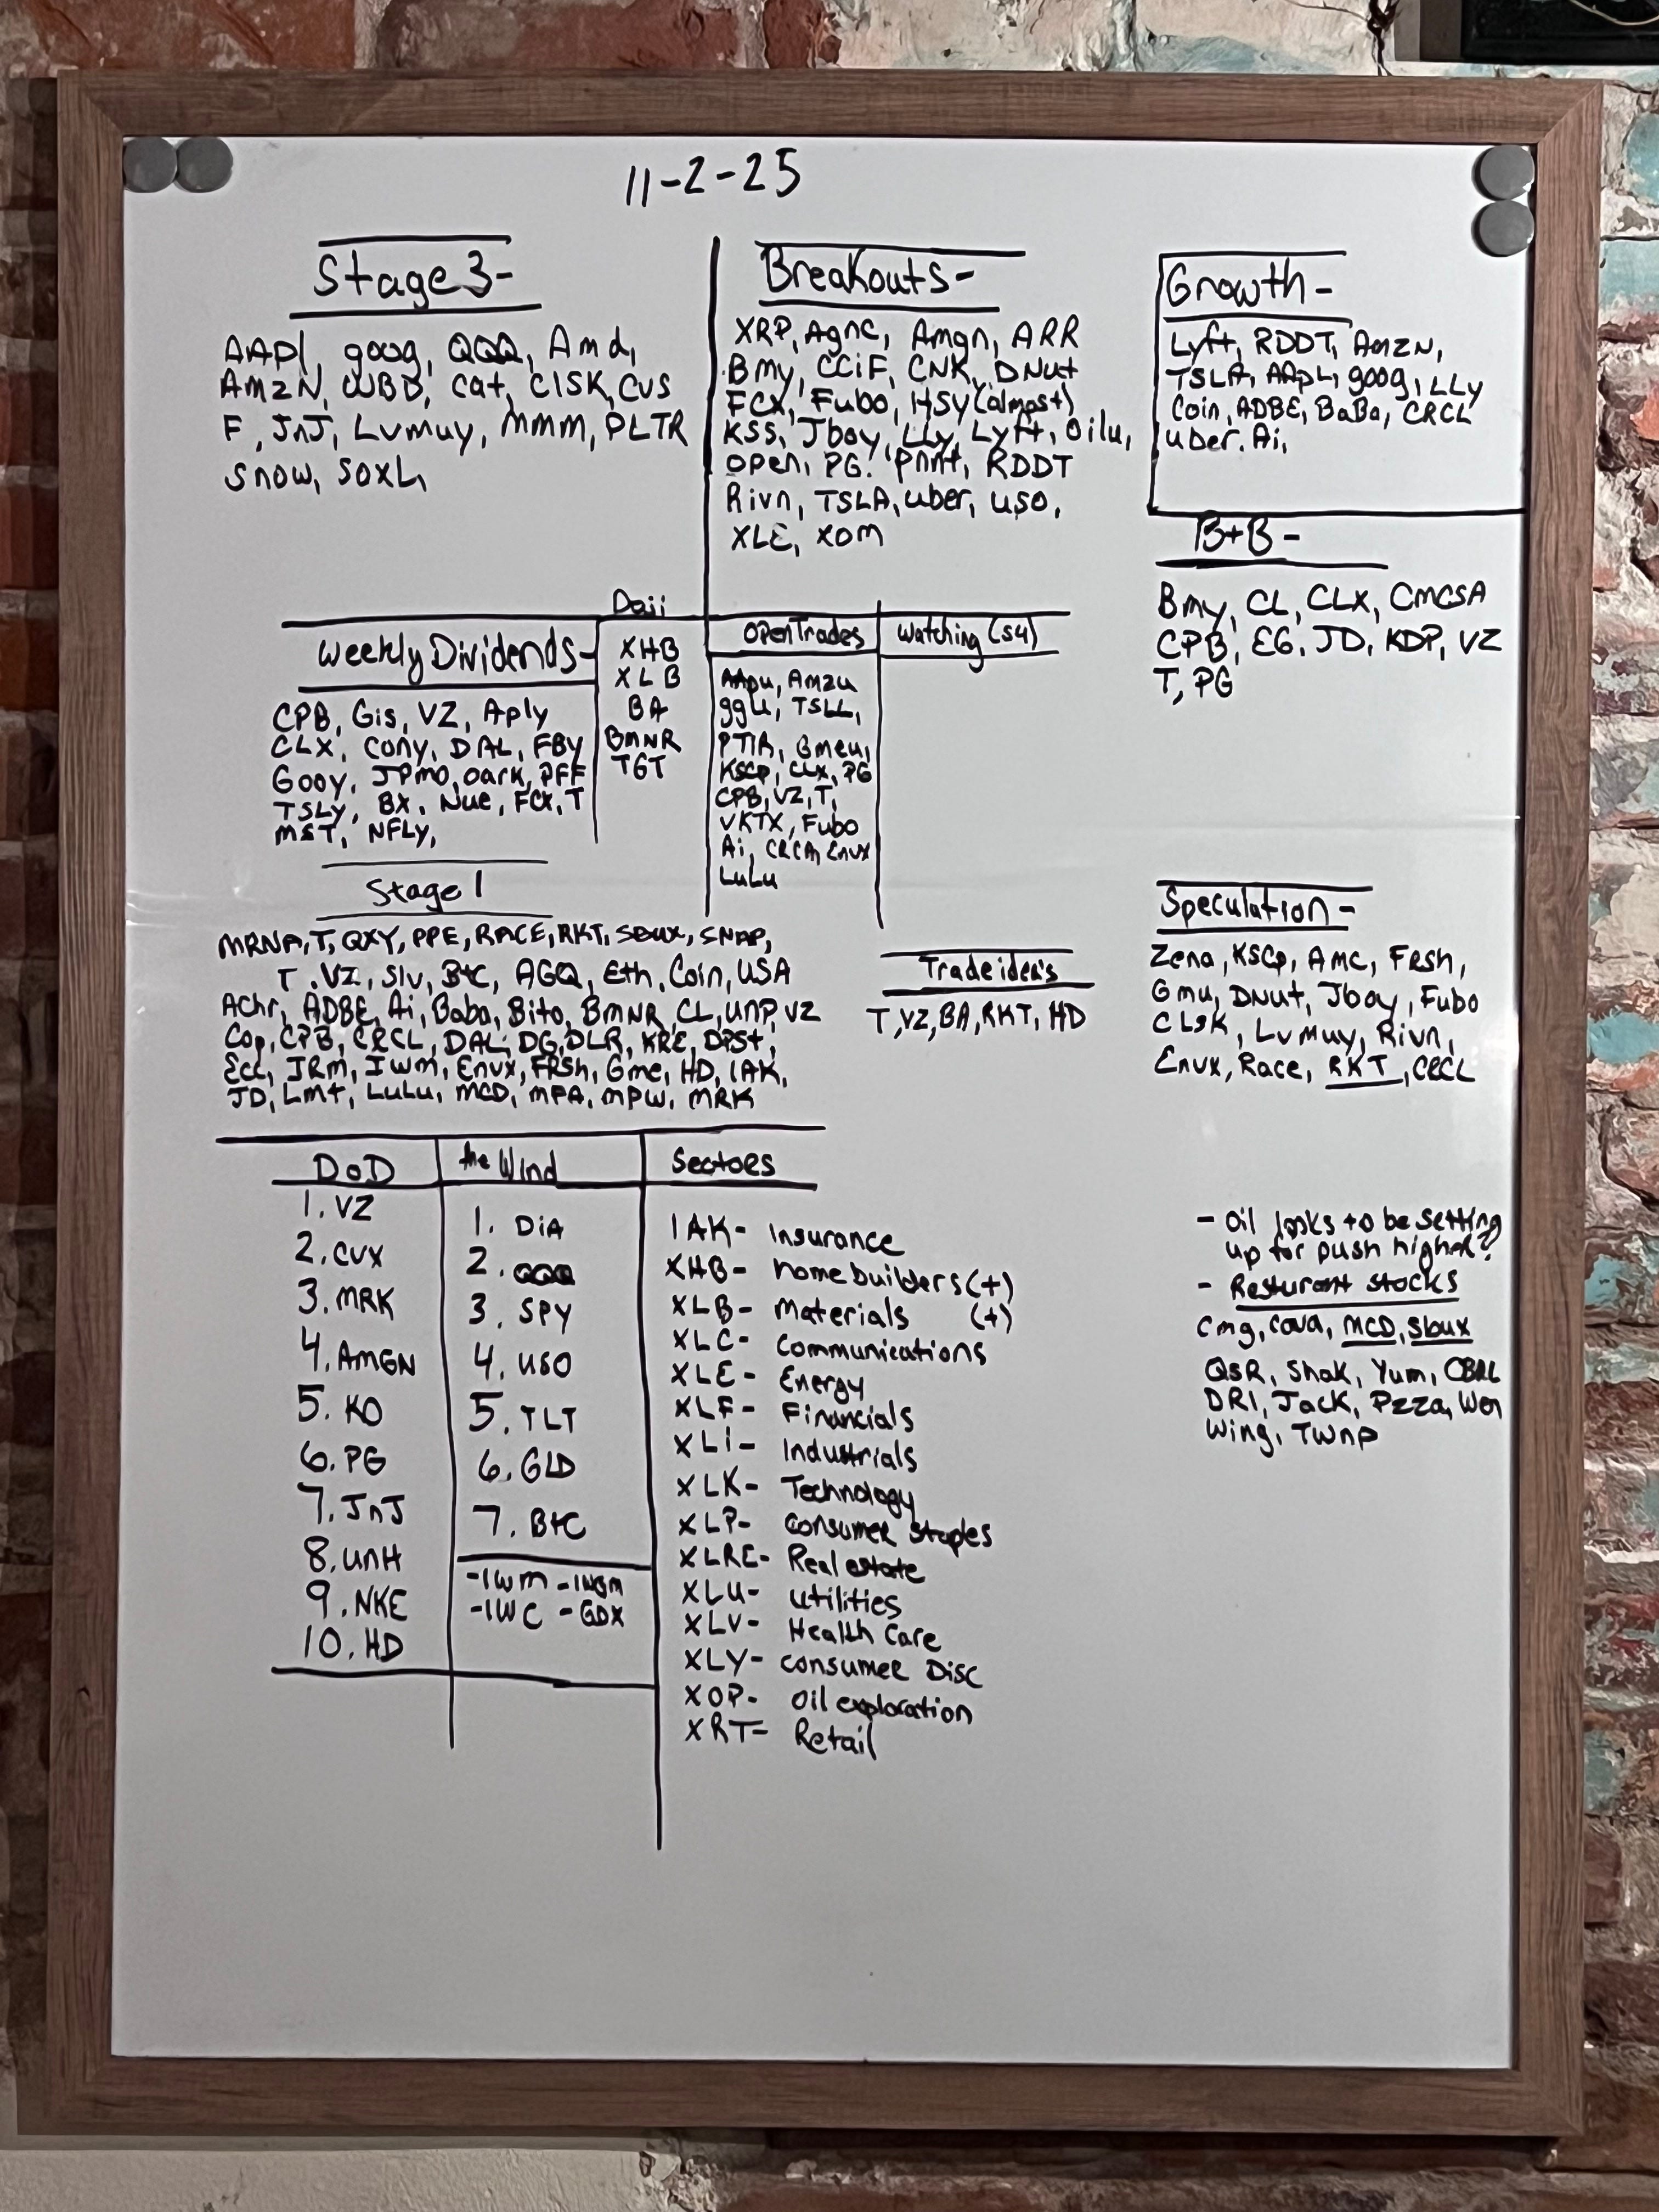 11-2-25
Stage 3-
AAPl, goog, QQQ, Amd,
AmzN, WBD, cat, ClSK, CVS
F, JnJ, Lvmuy, mmm, PLTR
Snow, SOXL,
Breakouts-
XRP, Agnc, Amgn, ARR
Bmy, CCiF, CNK, DNut
FCX, Fubo, HSy (almost)
KSS, Jboy, LLy, Lyft, Oilu,
open, PG. Pnnt, RDDT
Rivn, TSLA, uber, uso,
XLE, XOM
Growth-
Lyft, RDDT, AmzN,
TSLA, AApL, goog, LLy
Coin, ADBE, BaBa, CRCL
uber. Ai,
B+B-
Bmy, CL, CLX, CMCSA
CPB, EG, JD, KDP, VZ
T, PG
Weekly Dividends-
CPB, Gis, VZ, Aply
CLX, cony, DAL, FBy
Gooy, JPmo, oark, PFF
TSLY, BX, Nue, FCX, T
MST, NFLY,
XHB
XLB
BA
BMNR
TGT
Open Trades
AApu, Amzu
ggu, TSLL,
PTIR, Gmeu,
KSCP, CLX, PG
CPB, VZ, T,
VKTX, Fubo
Ai, CRCA, Envx
LuLu
Watching (S4)
Stage 1
MRNA, T, QXY, PPE, RACE, RKT, SBUX, SNAP,
T. VZ, Slv, BtC, AGQ, Eth, Coin, USA
Achr, ADBE, Ai, Baba, Bito, BmNR, CL, UNP, VZ
Cop, CPB, CRCL, DAL, DG, DLR, KRE, DPSt,
Ecc, JRm, Iwm, Envx, FRSh, Gme, HD, IAK,
JD, Lmt, LuLu, MCD, MPA, MPW, MRK
Trade iden's
T, VZ, BA, RKT, HD
Speculation-
Zena, KSCp, Amc, FRSh,
Gmu, DNut, Jboy, Fubo
CLSK, Lvmuy, Rivn,
Envx, Race, RKT, CRCL
DoD
1. VZ
2. CVX
3. MRK
4. AMGN
5. KO
6. PG
7. JnJ
8. UNH
9. NKE
10. HD
the Wind
1. DiA
2. QQQ
3. SPY
4. USO
5. TLT
6. GLD
7. BtC
-IWM -IWGM
-IWC -GDX
Sectors
IAK- Insurance
XHB- homebuilders (+)
XLB- Materials (+)
XLC- Communications
XLE- Energy
XLF- Financials
XLi- Industrials
XLK- Technology
XLP- Consumer Staples
XLRE- Real estate
XLU- utilities
XLV- Health Care
XLY- consumer Disc
XOP- oil exploration
XRT- Retail
- Oil looks to be setting
up for push higher?
- Resturant stocks
Cmg, cava, MCD, Sbux
QSR, Shak, Yum, CBRL
DRI, JacK, Pzza, Wen
Wing, TWNP